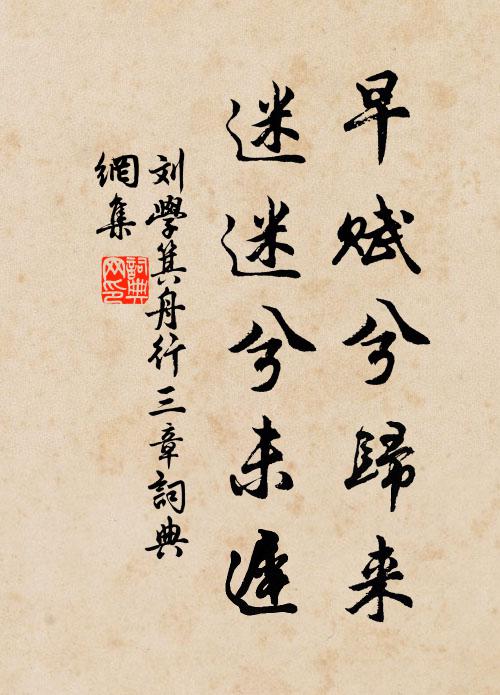 早赋兮歸来
迷迷兮未遲
刘學箕舟行三章詞典
網集
詞典
网印